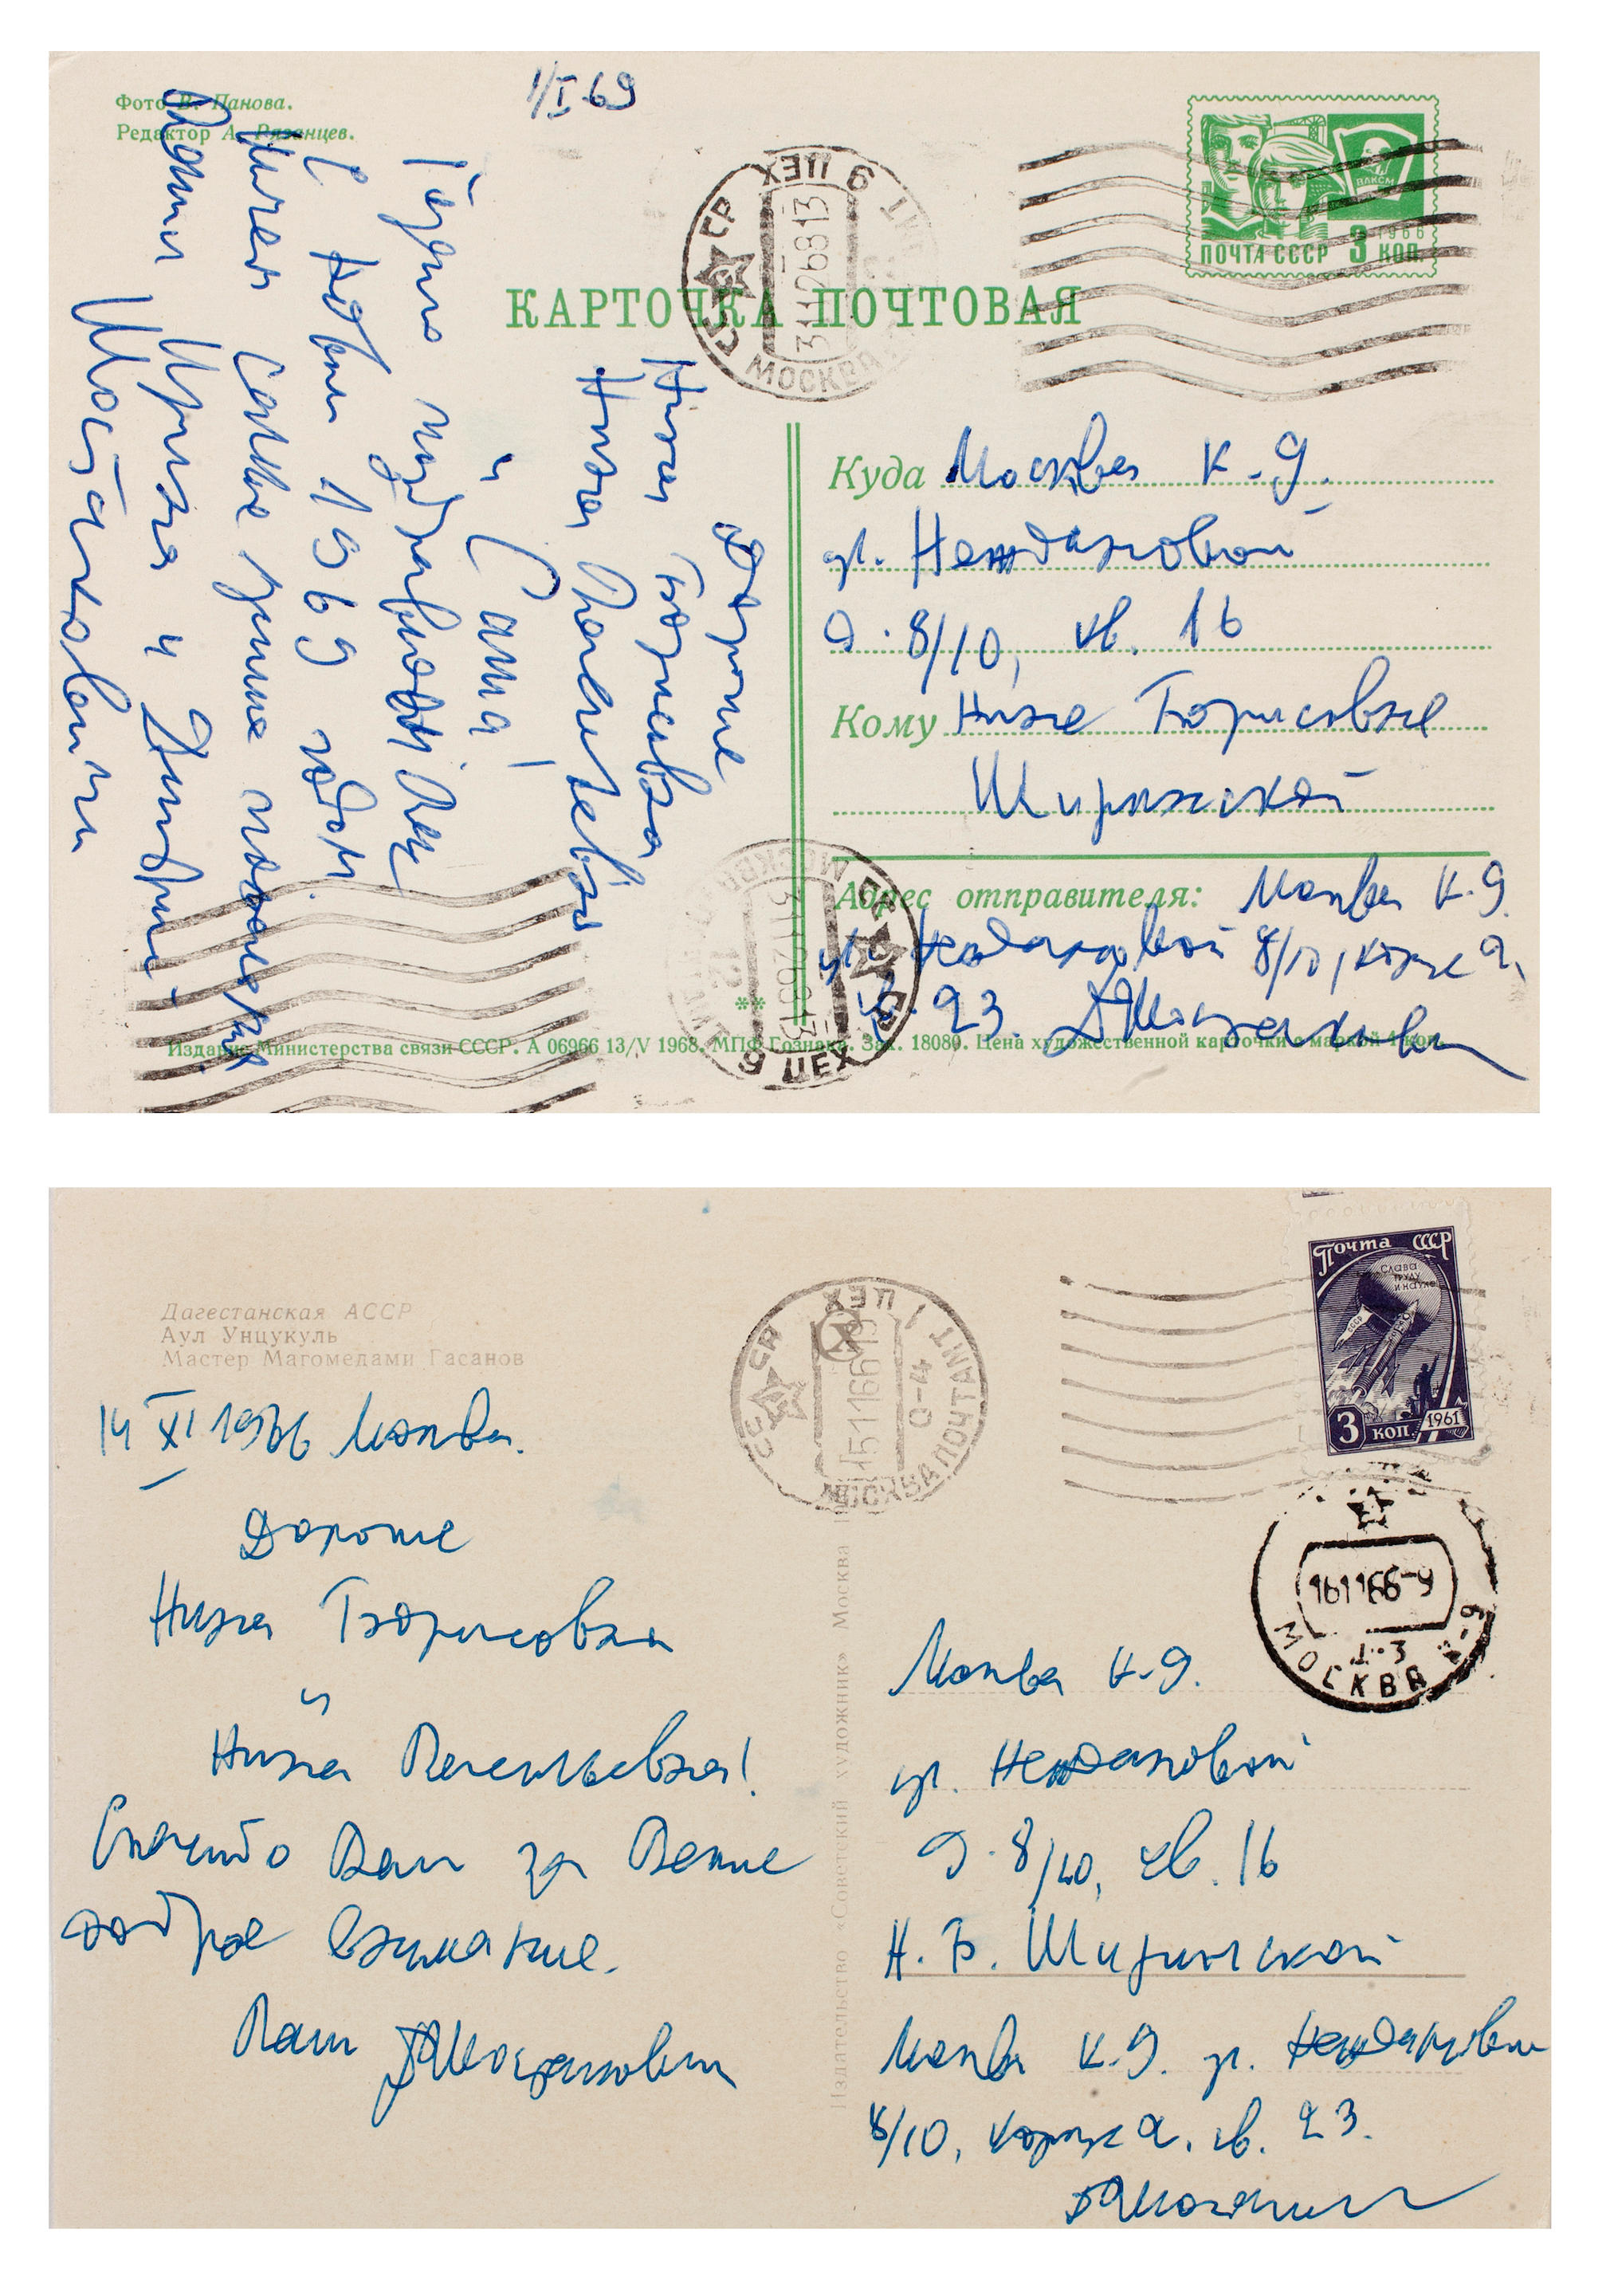 Фото В. Панова.
Редактор А. Рязанцев.
1/I 69
КАРТОЧКА ПОЧТОВАЯ
ВЛКСМ
1966
ПОЧТА СССР 3 КОП.
СССР
МОСКВА
9 ЦЕХ
31126813
Дорогие
Нина Борисовна
Нина Васильевна
и Саша!
Горячо поздравляем Вас
с Новым 1969 годом.
Шлем самые лучшие пожелания
Ваши Ирина и Дмитрий
Шостаковичи
Куда Москва К-9.
ул. Неждановой
д. 8/10, кв. 16
Кому Нине Борисовне
Ширинской
Адрес отправителя: Москва К-9.
ул. Неждановой 8/10, корпус 2,
кв. 23. ДШостакович
МОСКВА
СССР
9 ЦЕХ
**
Издание Министерства связи СССР. А 06966 13/V 1968. МПФ Гознака. Зак. 18080. Цена художественной карточки с маркой 4 коп.
Дагестанская АССР
Аул Унцукуль
Мастер Магомедами Гасанов
14 XI 1966 Москва.
Дорогие
Нина Борисовна
и
Нина Васильевна!
Спасибо Вам за Ваше
доброе внимание.
Ваш ДШостакович
СССР
МОСКВА ПОЧТАМТ
1 ЦЕХ
Почта СССР
Слава
труду
и науке
СССР
3 коп. 1961
161166-9
МОСКВА
Издательство «Советский художник» Москва
Москва К-9.
ул. Неждановой
д. 8/10, кв. 16
Н. Б. Ширинской
Москва К-9. ул. Неждановой
8/10, корпус 2, кв. 23.
ДШостакович